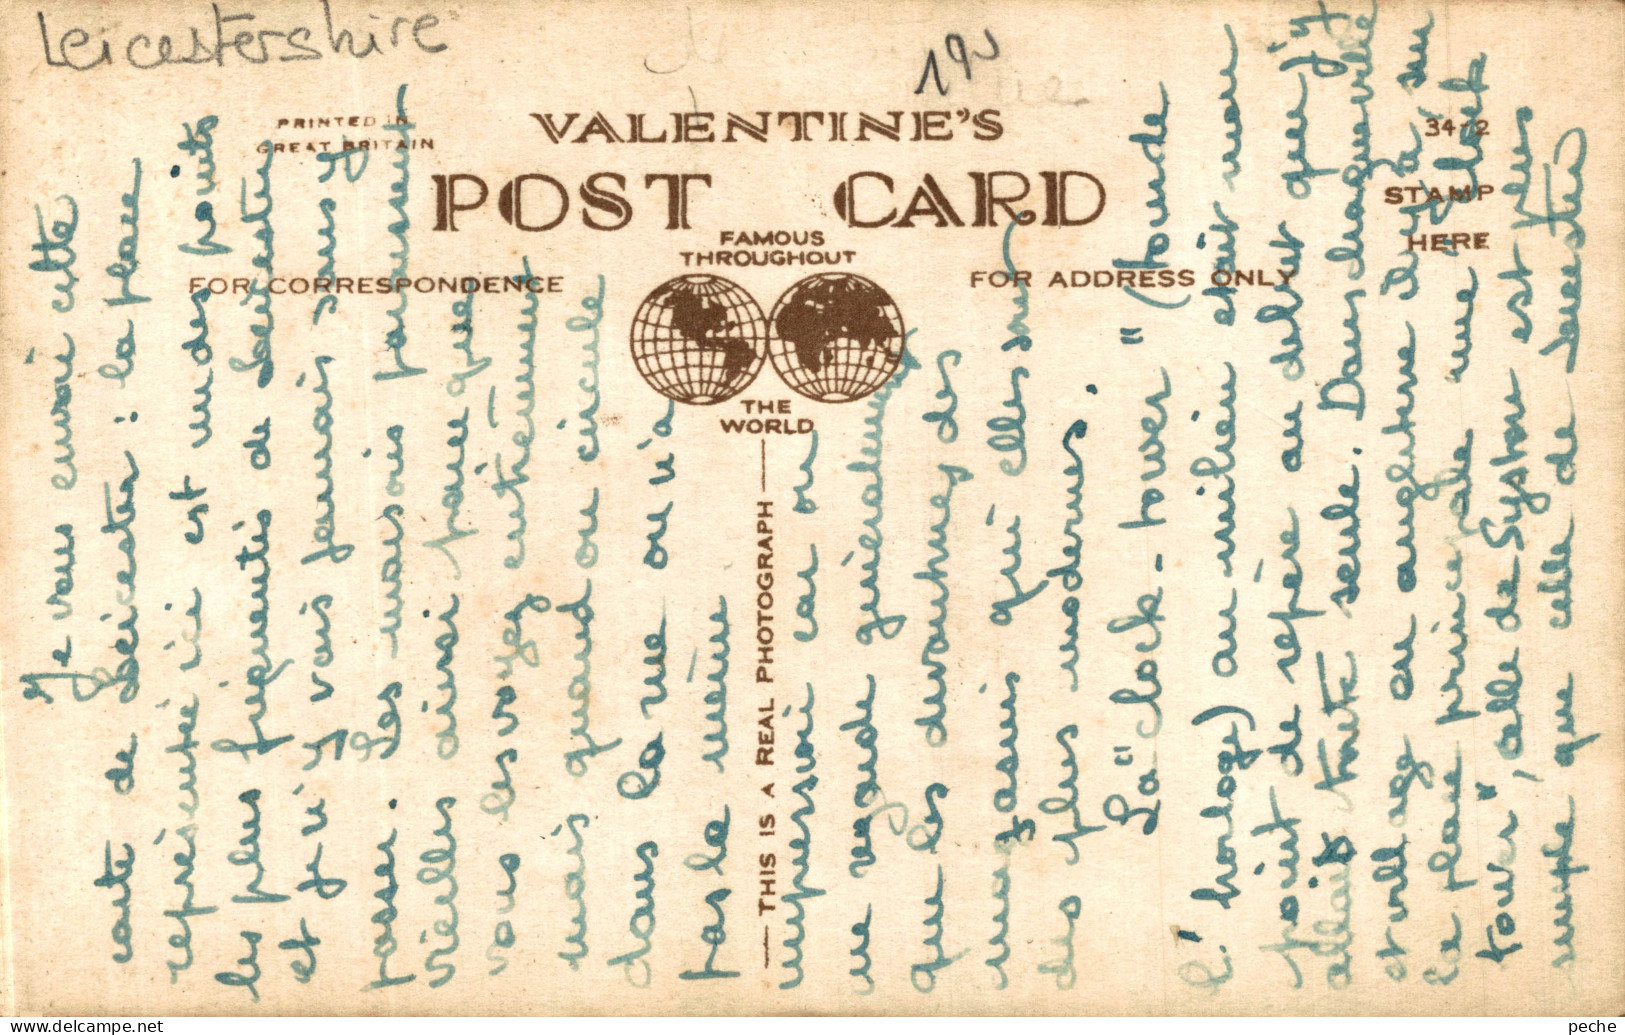 Leicestershire
190
PRINTED IN
GREAT BRITAIN
VALENTINE'S
POST CARD
34-2
STAMP
HERE
FAMOUS
THROUGHOUT
THE
WORLD
FOR CORRESPONDENCE
FOR ADDRESS ONLY
THIS IS A REAL PHOTOGRAPH
Je vous envoie cette
carte de Leicester : la place
représentée ici est un des points
les plus fréquentés de Leicester
et je n'y vais jamais sans y
passer. Les maisons paraissent
vieilles ainsi parce que
vous les voyez entièrement
mais quand on circule
dans la rue on n'a
pas la même
impression car on
ne regarde généralement
que les devantures des
magasins qui elles sont
des plus modernes.
La "clock-tower" (tour de
l'horloge) au milieu était mon
point de repère au début quand j'y
allais toute seule. Dans chaque ville
et village en angleterre il y a sur
la place principale une "clock
tower", celle de Syston est plus
simple que celle de Leicester
peche delcampe.net